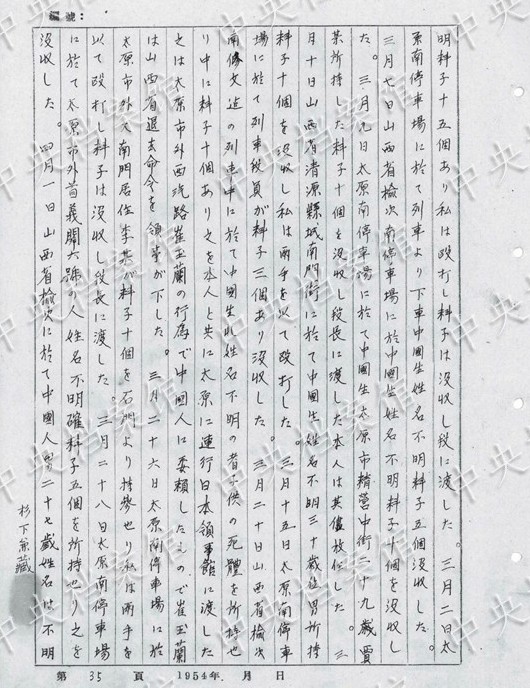 編號：
明料子十五個あり私は殴打し料子は没収し役に渡した。三月二日太
原南停車場に於て列車より下車中國生姓名不明料子五個没収した。
三月七日山西省榆次南停車場に於中國生姓名不明料子十個を没収し
た。三月九日太原南停車場に於て中國生太原市精営中街二十九歳賈
某所持した料子十個を没収し役長に渡した本人は其儘放任した。三
月十日山西省清源縣城南門街に於て中國生姓名不明三十歳位男所持
料子十個を没収し私は両手を以て殴打した。三月十五日太原南停車
場に於て列車役員が料子三個あり没収した。三月二十日山西省榆次
南條文近の列車中に於て中國生姓名不明の者子供の死體を所持
り中に料子十個あり之を本人と共に太原に連行日本領事館に渡した
之は太原市外西汽路崔玉蘭の行為で中國人に委頼したもので崔玉蘭
は山西省退去命令を領事が下した。三月二十六日太原南停車場に於
太原市外大南門居住李某が料子十個を石門より持参せり私は両手を
以て殴打し料子は没収し役長に渡した。三月二十八日太原南停車場
に於て太原市外首義關六號の人姓名不明確料子五個を所持せり之を
没収した。四月一日山西省榆次に於て中國人男二十七歳姓名は不明
杉下兼蔵
第 35 頁 1954年 月 日
中央档案馆